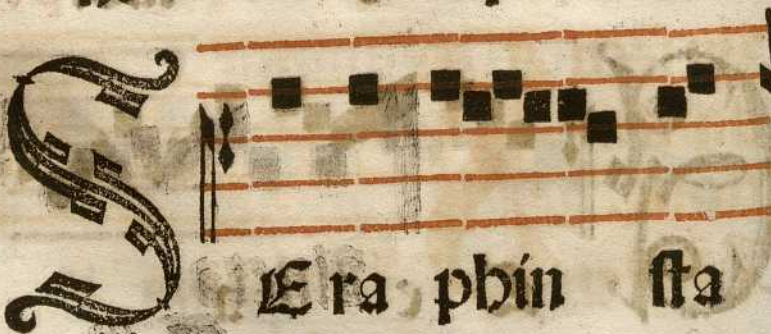 SEra phin sta